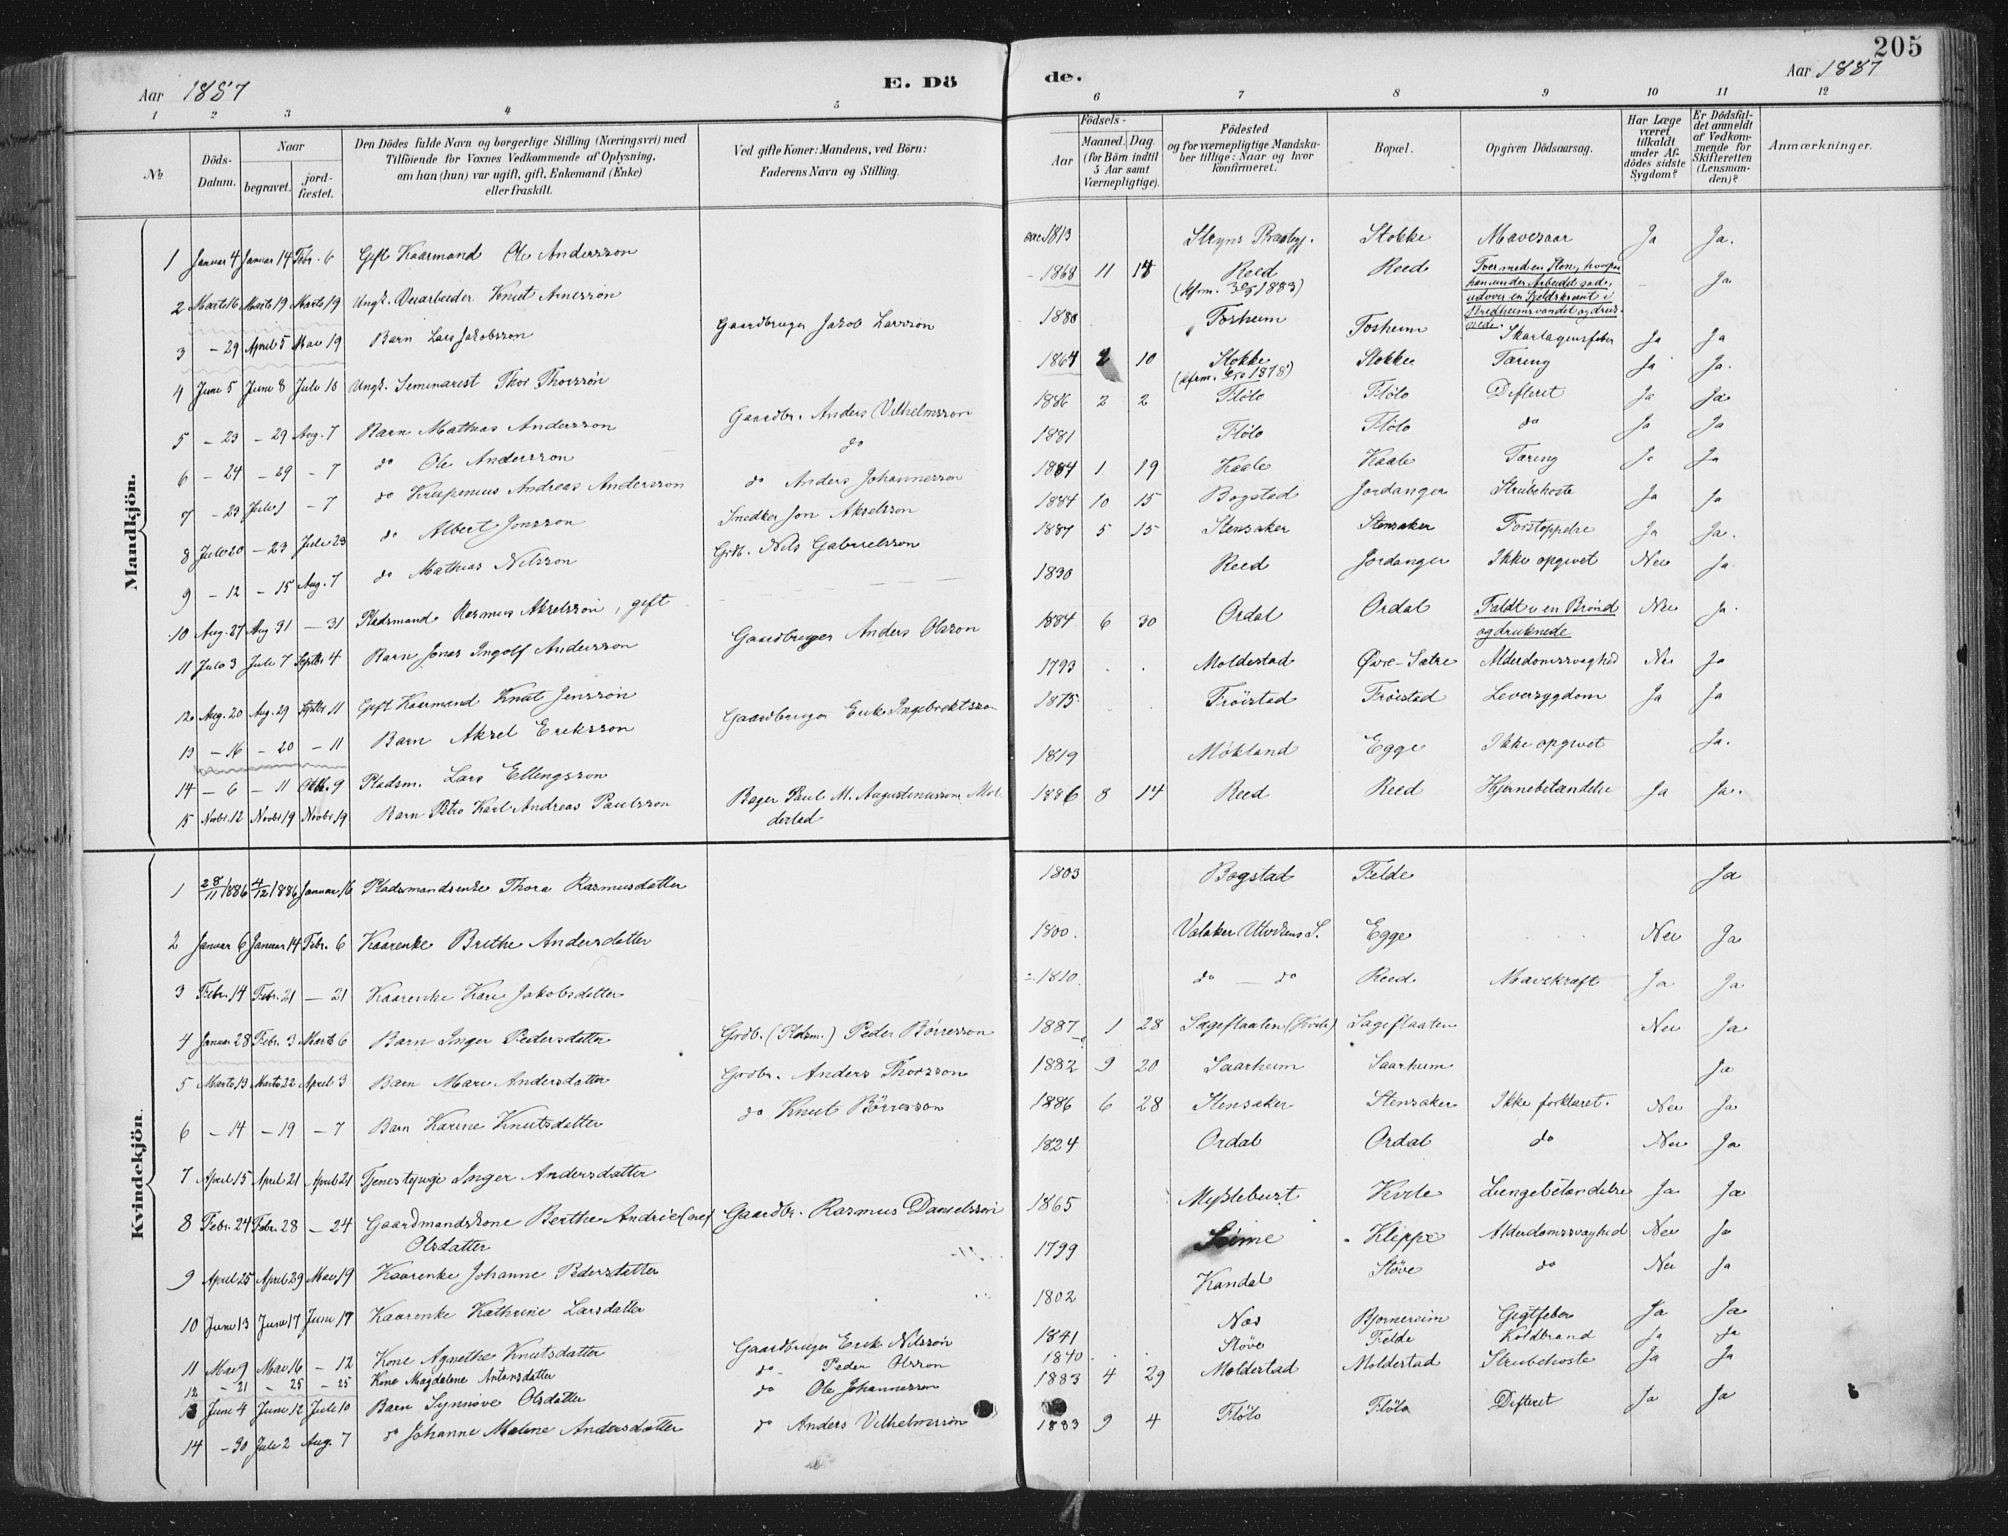 205
Aar 1887
E. Dö
de.
Aar 1887
1 2 3 4 5 6 7 8 9 10 11 12
No
Döds-Datum.
Naar
begravet.
jord-fæstet.
Den Dödes fulde Navn og borgerlige Stilling (Næringsvei) med
Tilföiende for Voxnes Vedkommende af Oplysning,
om han (hun) var ugift, gift, Enkemand (Enke)
eller fraskilt.
Ved gifte Koner: Mandens, ved Börn:
Faderens Navn og Stilling.
Födsels-
Aar
Maaned. Dag
(for Börn indtil
5 Aar samt
Værnepligtige).
Födested
og for værnepligtige Mandska-
ber tillige: Naar og hvor
konfirmeret.
Bopæl.
Opgiven Dödsaarsag.
Har Læge
været
tilkaldt
under Af-
dödes sidste
Sygdom?
Er Dödsfal-
det anmeldt
af Vedkom-
mende for
Skifteretten
(Lensman-
den)?
Anmærkninger.
Mandkjön.
1 Januar 4 Januar 14 Febr. 6 Gift Kaarmand Ole Anderssön 1813 Stryns Præstegj. Stokke Mavesaar Ja Ja.
2 Marts 16 Marts 19 Marts 19 Ungk. Veiarbeider Knut Arnessön 1868 11 14 Reed Reed Foer med en Sten, hvorpaa
(kfrm. 1883) han under Arbeidet sad,
udover en Fjeldskrænt i
Bredheimsvandet og druk-
nede. Ja
3 - 29 April 5 Mai 19 Barn Lars Jakobssön Gaardbruger Jakob Larssön 1880 Forheim Forheim Skarlagensfeber Ja Ja
4 Juni 5 Juni 8 Juli 10 Ungk. Seminarist Thor Thorssön 1864 2 10 Stokke Stokke Tæring Ja Ja.
(kfrm. 1878)
5 - 23 - 29 Aug. 7 Barn Mathias Anderssön Gaardbr. Anders Vilhelmssön 1886 2 2 Flölo Flölo Difterit Ja Ja
6 - 24 - 29 - 7 do Ole Anderssön do 1881 Flölo Flölo do Ja Ja
7 - 23 Juli 1 - 7 do Krispinius Andreas Anderssön do Anders Johannessön 1884 1 19 Kaale Kaale Tæring Ja Ja
8 Juli 20 - 23 Juli 23 do Albert Jonssön Snedker Jon Akselssön 1884 10 15 Bogstad Jordanger Strubehoste Ja Ja
9 - 12 - 15 Aug. 7 do Mathias Nilssön Grdb. Nils Gabrielssön 1887 5 15 Stensaker Stensaker Forstoppelse Ja Ja.
10 Aug. 27 Aug 31 - 31 Pladsmand Rasmus Akselssön, gift 1830 Reed Jordanger Ikke opgivet Nei Ja
11 Juli 3 Juli 7 Septbr 4 Barn Jonas Ingolf Anderssön Gaardbruger Anders Olssön 1884 6 30 Ordal Ordal Faldt i en Brönd Nei Ja.
og druknede
12 Aug. 20 Aug. 29 Septbr 11 Gift Kaarmand Knut Jenssön 1793 Moldestad Övre-Sætre Alderdomssvaghed Nei Ja
13 - 16 - 20 - 11 Barn Aksel Erikssön Gaardbruger Erik Ingebrektssön 1875 Fröistad Fröistad Leversygdom Ja Ja
14 - 6 - 11 Oktb. 9 Pladsm. Lars Ellingssön 1819 Mökland Egge Ikke opgivet Ja.
15 Novbr 12 Novbr 19 Novbr 19 Barn Petro Karl Andreas Paulssön Bager Paul M. Augustinussön Mol- 1886 8 14 Reed Reed Hjernebetændelse Ja Ja.
destad
Kvindekjön.
1 28/11 1886 4/12 1886 Januar 16 Pladsmandsenke Thora Rasmusdatter 1803 Bogstad Felde Ja
2 Januar 6 Januar 14 Febr. 6 Kaarenke Brithe Andersdatter 1800. Valaker Utvikens S. Egge Nei Ja
3 Febr. 14 Febr. 21 - 21 Kaarenke Kari Jakobsdatter 1810. do - do Reed Mavekræft Ja Ja
4 Januar 28 Febr. 3 Marts 6 Barn Inger Pedersdatter Grdb. (Pladsm.) Peder Börressön 1887 1 28 Sageflaaten (Kvile) Sageflaaten Nei Ja
5 Marts 13 Marts 22 April 3 Barn Mari Andersdatter Grdbr. Anders Thorssön 1882 9 20 Saarheim Saarheim Ja
6 - 14 - 19 - 7 Barn Karine Knutsdatter do Knut Börressön 1886 6 28 Stensaker Stensaker Ikke forklaret. Nei Ja
7 April 15 April 21 April 21 Tjenestepige Inger Andersdatter 1824 Ordal Ordal do Nei Ja
8 Febr. 24 Febr. 28 - 24 Gaardmandskone Berthe Andrie(ne) Gaardbr. Rasmus Danielssön 1865 Myklebust Kvile Lungebetændelse Ja Ja
Olsdatter
9 April 25 April 29 Mai 19 Kaarenke Johanne Pedersdatter 1799 Seime Kleppe Alderdomssvaghed Nei Ja
10 Juni 13 Juni 17 Juni 19 Kaarenke Kathrine Larsdatter 1802 Kandal Stöve do Nei Ja
11 Mai 9 Mai 16 - 12 Kone Agnethe Knutsdatter Gaardbruger Erik Nilssön 1841 Næs Bjornereim Gigtfeber Ja Ja
12 - 21 - 25 - 25 Kone Magdalene Antonsdatter do Peder Olssön 1840 Stöve Felde Koldbrand Ja Ja
13 Juni 4 Juni 12 Juli 10 Barn Synnöve Olsdatter do Ole Johannessön 1883 4 29 Moldestad Moldestad Strubehoste Ja Ja
14 - 30 Juli 2 Aug. 7 do Johanne Malene Andersdatter do Anders Vilhelmssön 1883 9 4 Flölo Flölo Difterit Ja Ja